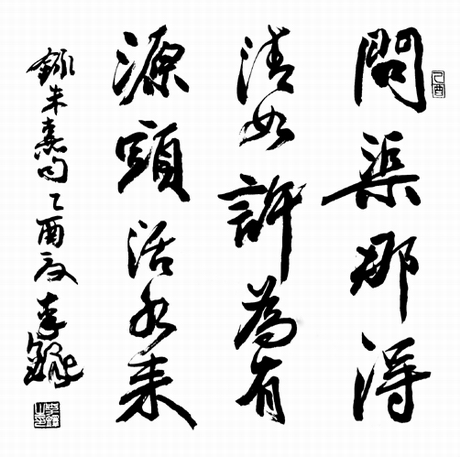 問渠那得
清如許為有
源頭活水来
錄朱熹句乙酉夏李鐸
乙酉